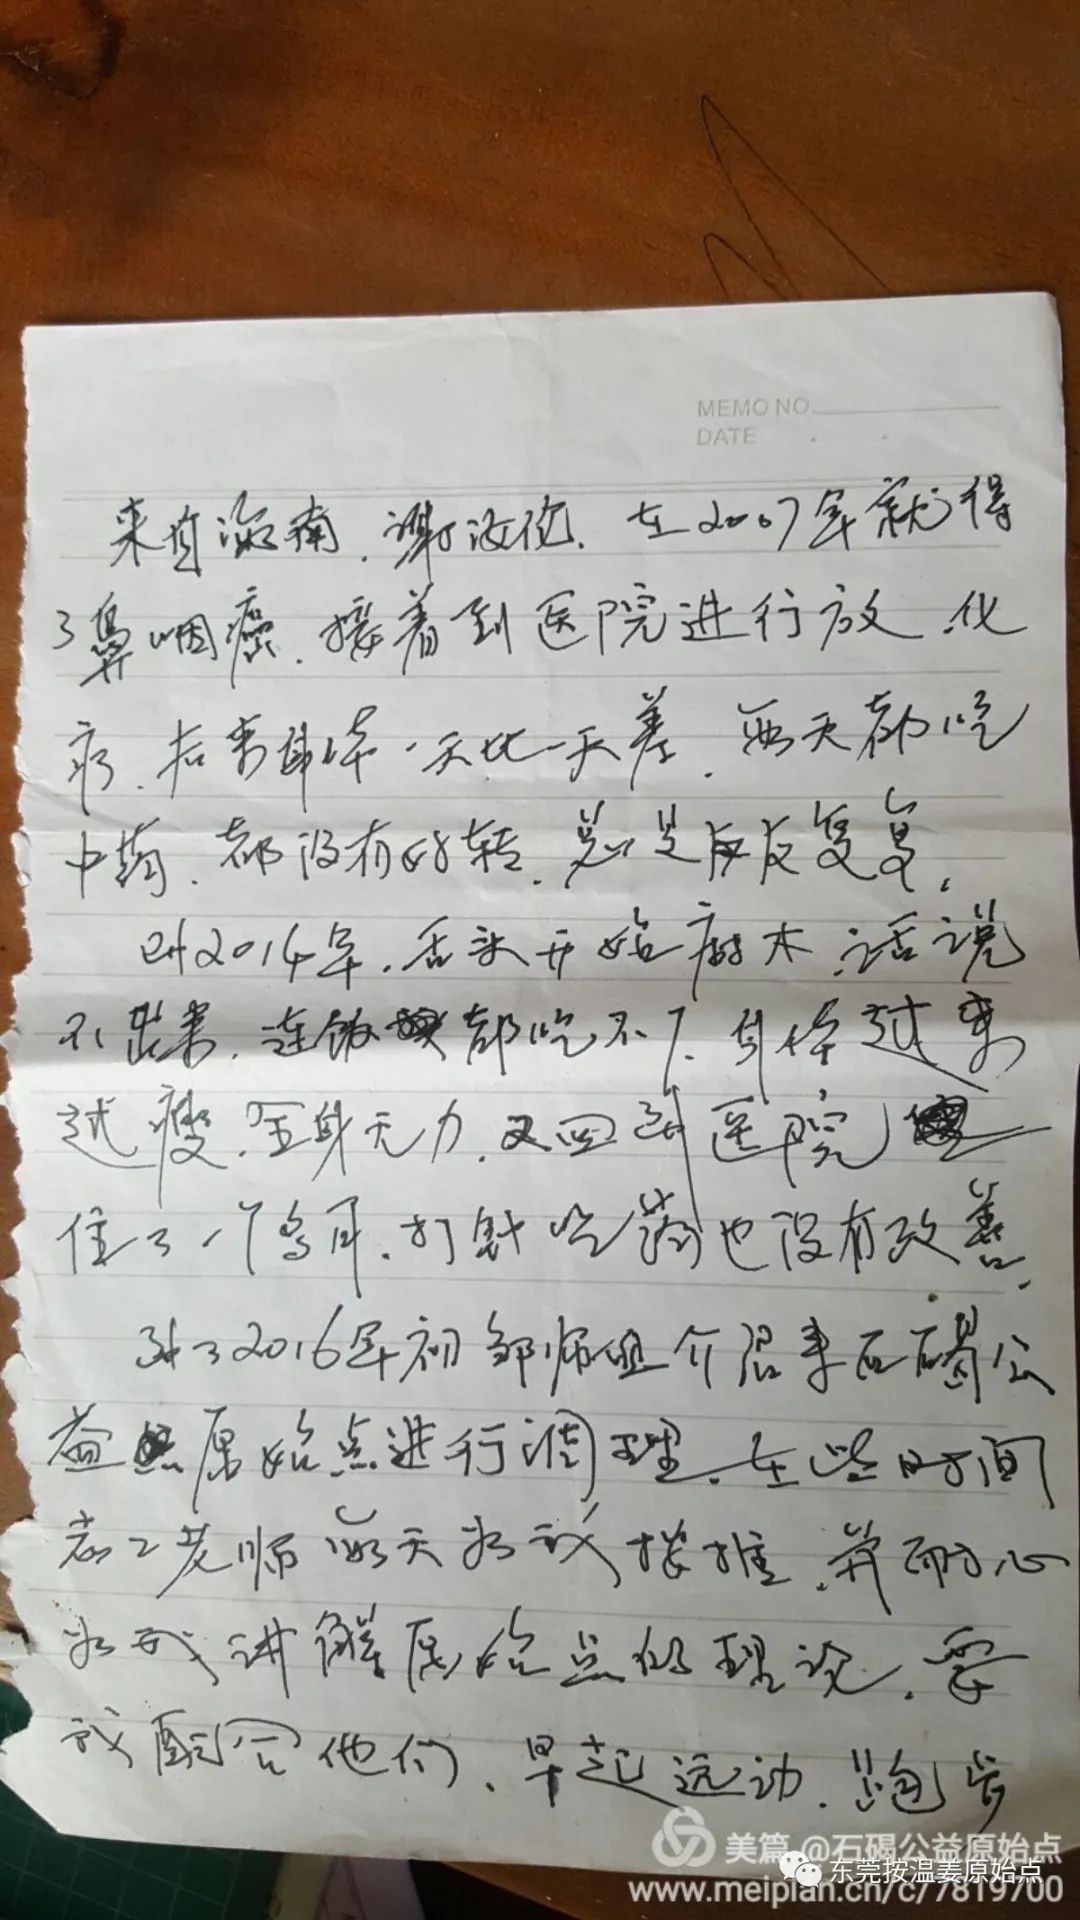 MEMO NO.
DATE
来自海南、谢汝俭、在2007年就得
了鼻咽癌、接着到医院进行放、化
疗、后来身体一天比一天差、每天都吃
中药、都没有好转、总是反反复复、
到2014年、舌头开始麻木、话说
不出来、连饭都吃不下、身体越来
越瘦、全身无力、又回到医院
住了一个多月、打针吃药也没有改善、
到了2016年初邹师姐介绍来石碣公
益原始点进行调理、在些时间
志工老师每天为我按推、并耐心
为我讲解原始点的理论、要
我配合他们、早起运动、跑步
美篇 @石碣公益原始点
东莞按温姜原始点
www.meipian.cn/c/7819700